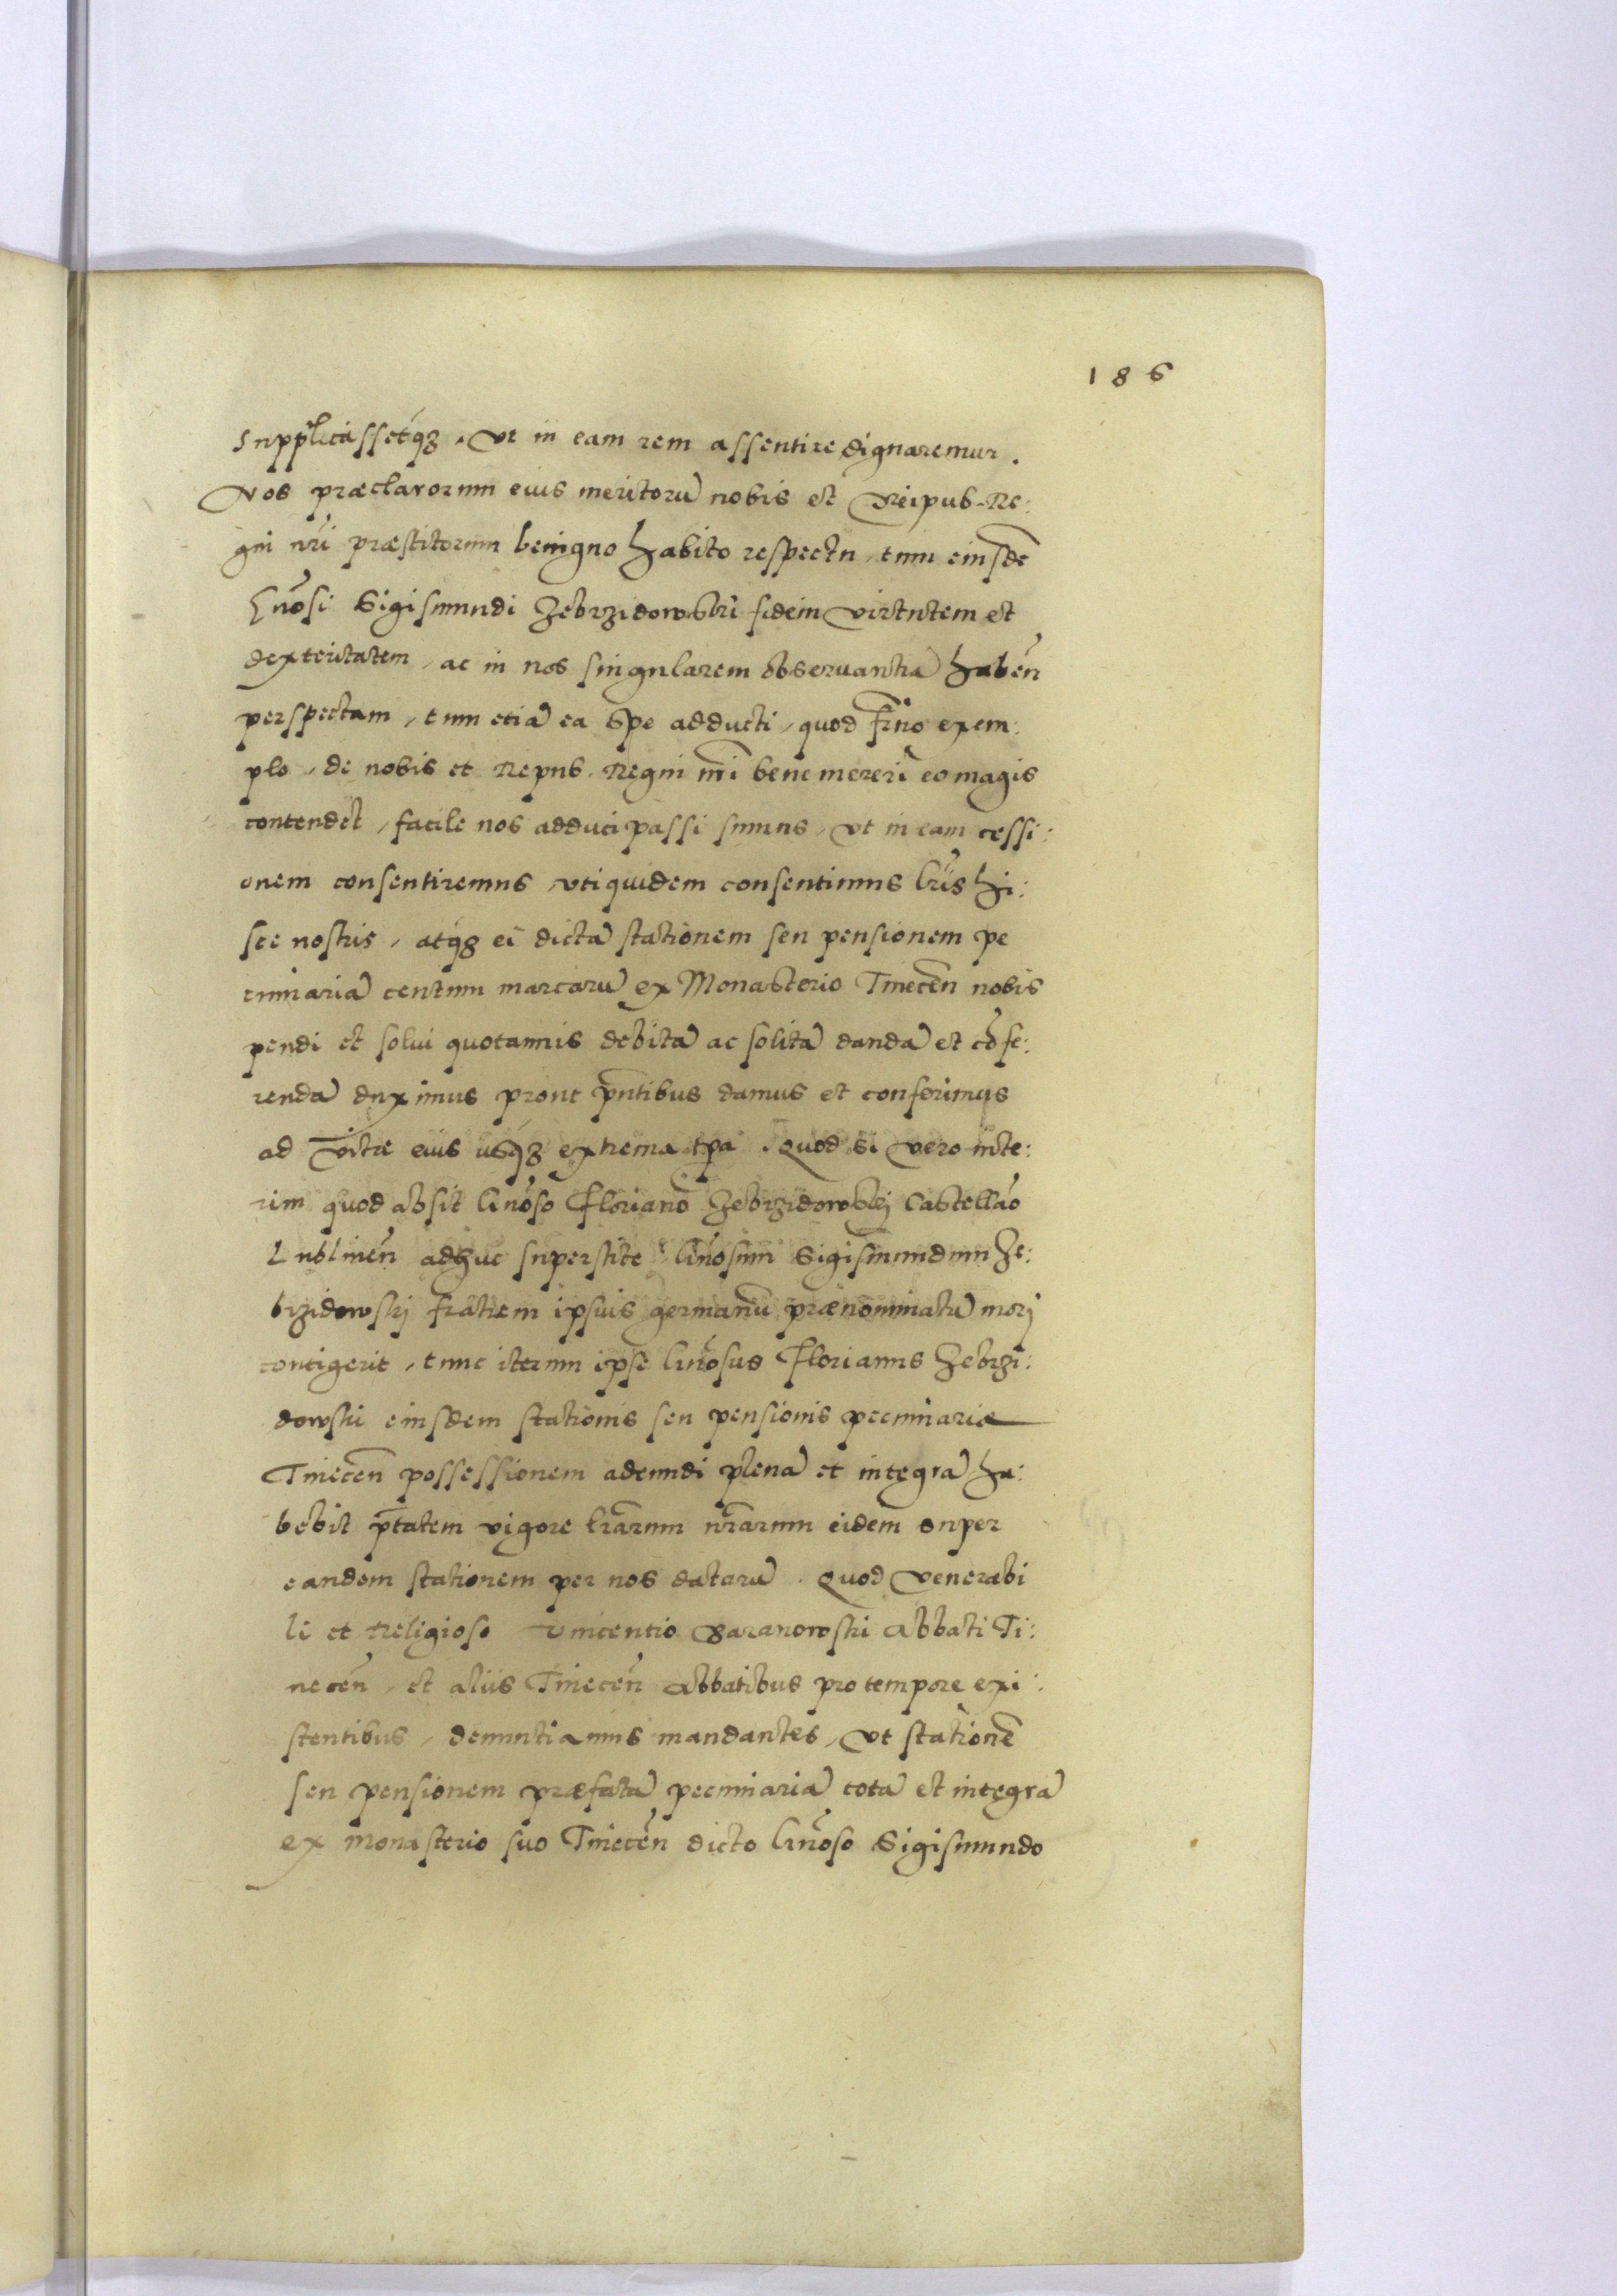 186
Supplicassetq₃. Vt in eam rem assentire dignaremur.
Nos præclarorum eius meritorũ nobis et Reipub. Re:
gni nr̃i præstitorum benigno habito respectu, tum eiusdẽ
Gñosi Sigismundi Zebrzidowski fidem virtutem et
dexteritatem, ac in nos singularem observantiã habeñ
perspectam, tum etiã ea spe adducti, quod fr̃no exem:
plo, de nobis et Repub. Regni nr̃i bene mereri eo magis
contendet, facile nos adduci passi sumus, vt in eam cessi:
onem consentiremus, vti quidem consentimus lr̃is hi:
sce nostris, atq₃ ei dictã stationem seu pensionem pe
cuniariã centum marcarũ ex Monasterio Tinecen̄ nobis
pendi et solui quotannis debitã ac solitã dandã et cõfe:
rendã duximus prout pñtibus damus et conferimus
ad vitæ eius usq₃ extrema tp̃a. Quod si vero inte:
rim quod absit Gñoso Floriano Zebrzidowskj Castellão
Lublineñ adhuc superstite Gñosum Sigismundum Ze:
brzidowskj fratrem ipsuis germanũ prænominatũ morj
contigerit, tunc iterum ipse Gñosus Florianus Zebrzi:
dowski eiusdem stationis seu pensionis pecuniariæ
Tinecen̄ possessionem adeundi plenã et integrã ha:
bebit p̃tatem vigore lr̃arum nr̃arum eidem super
eandem stationem per nos datarũ. Quod Venerabi
li et Religioso Vincentio Baranowski Abbati Ti:
neceñ, et aliis Tineceñ Abbatibus pro tempore exi:
stentibus, denuntiamus mandantes, vt stationẽ
seu pensionem præfatã pecuniariã totã et integrã
ex monasterio suo Tineceñ dicto Gñoso Sigismundo